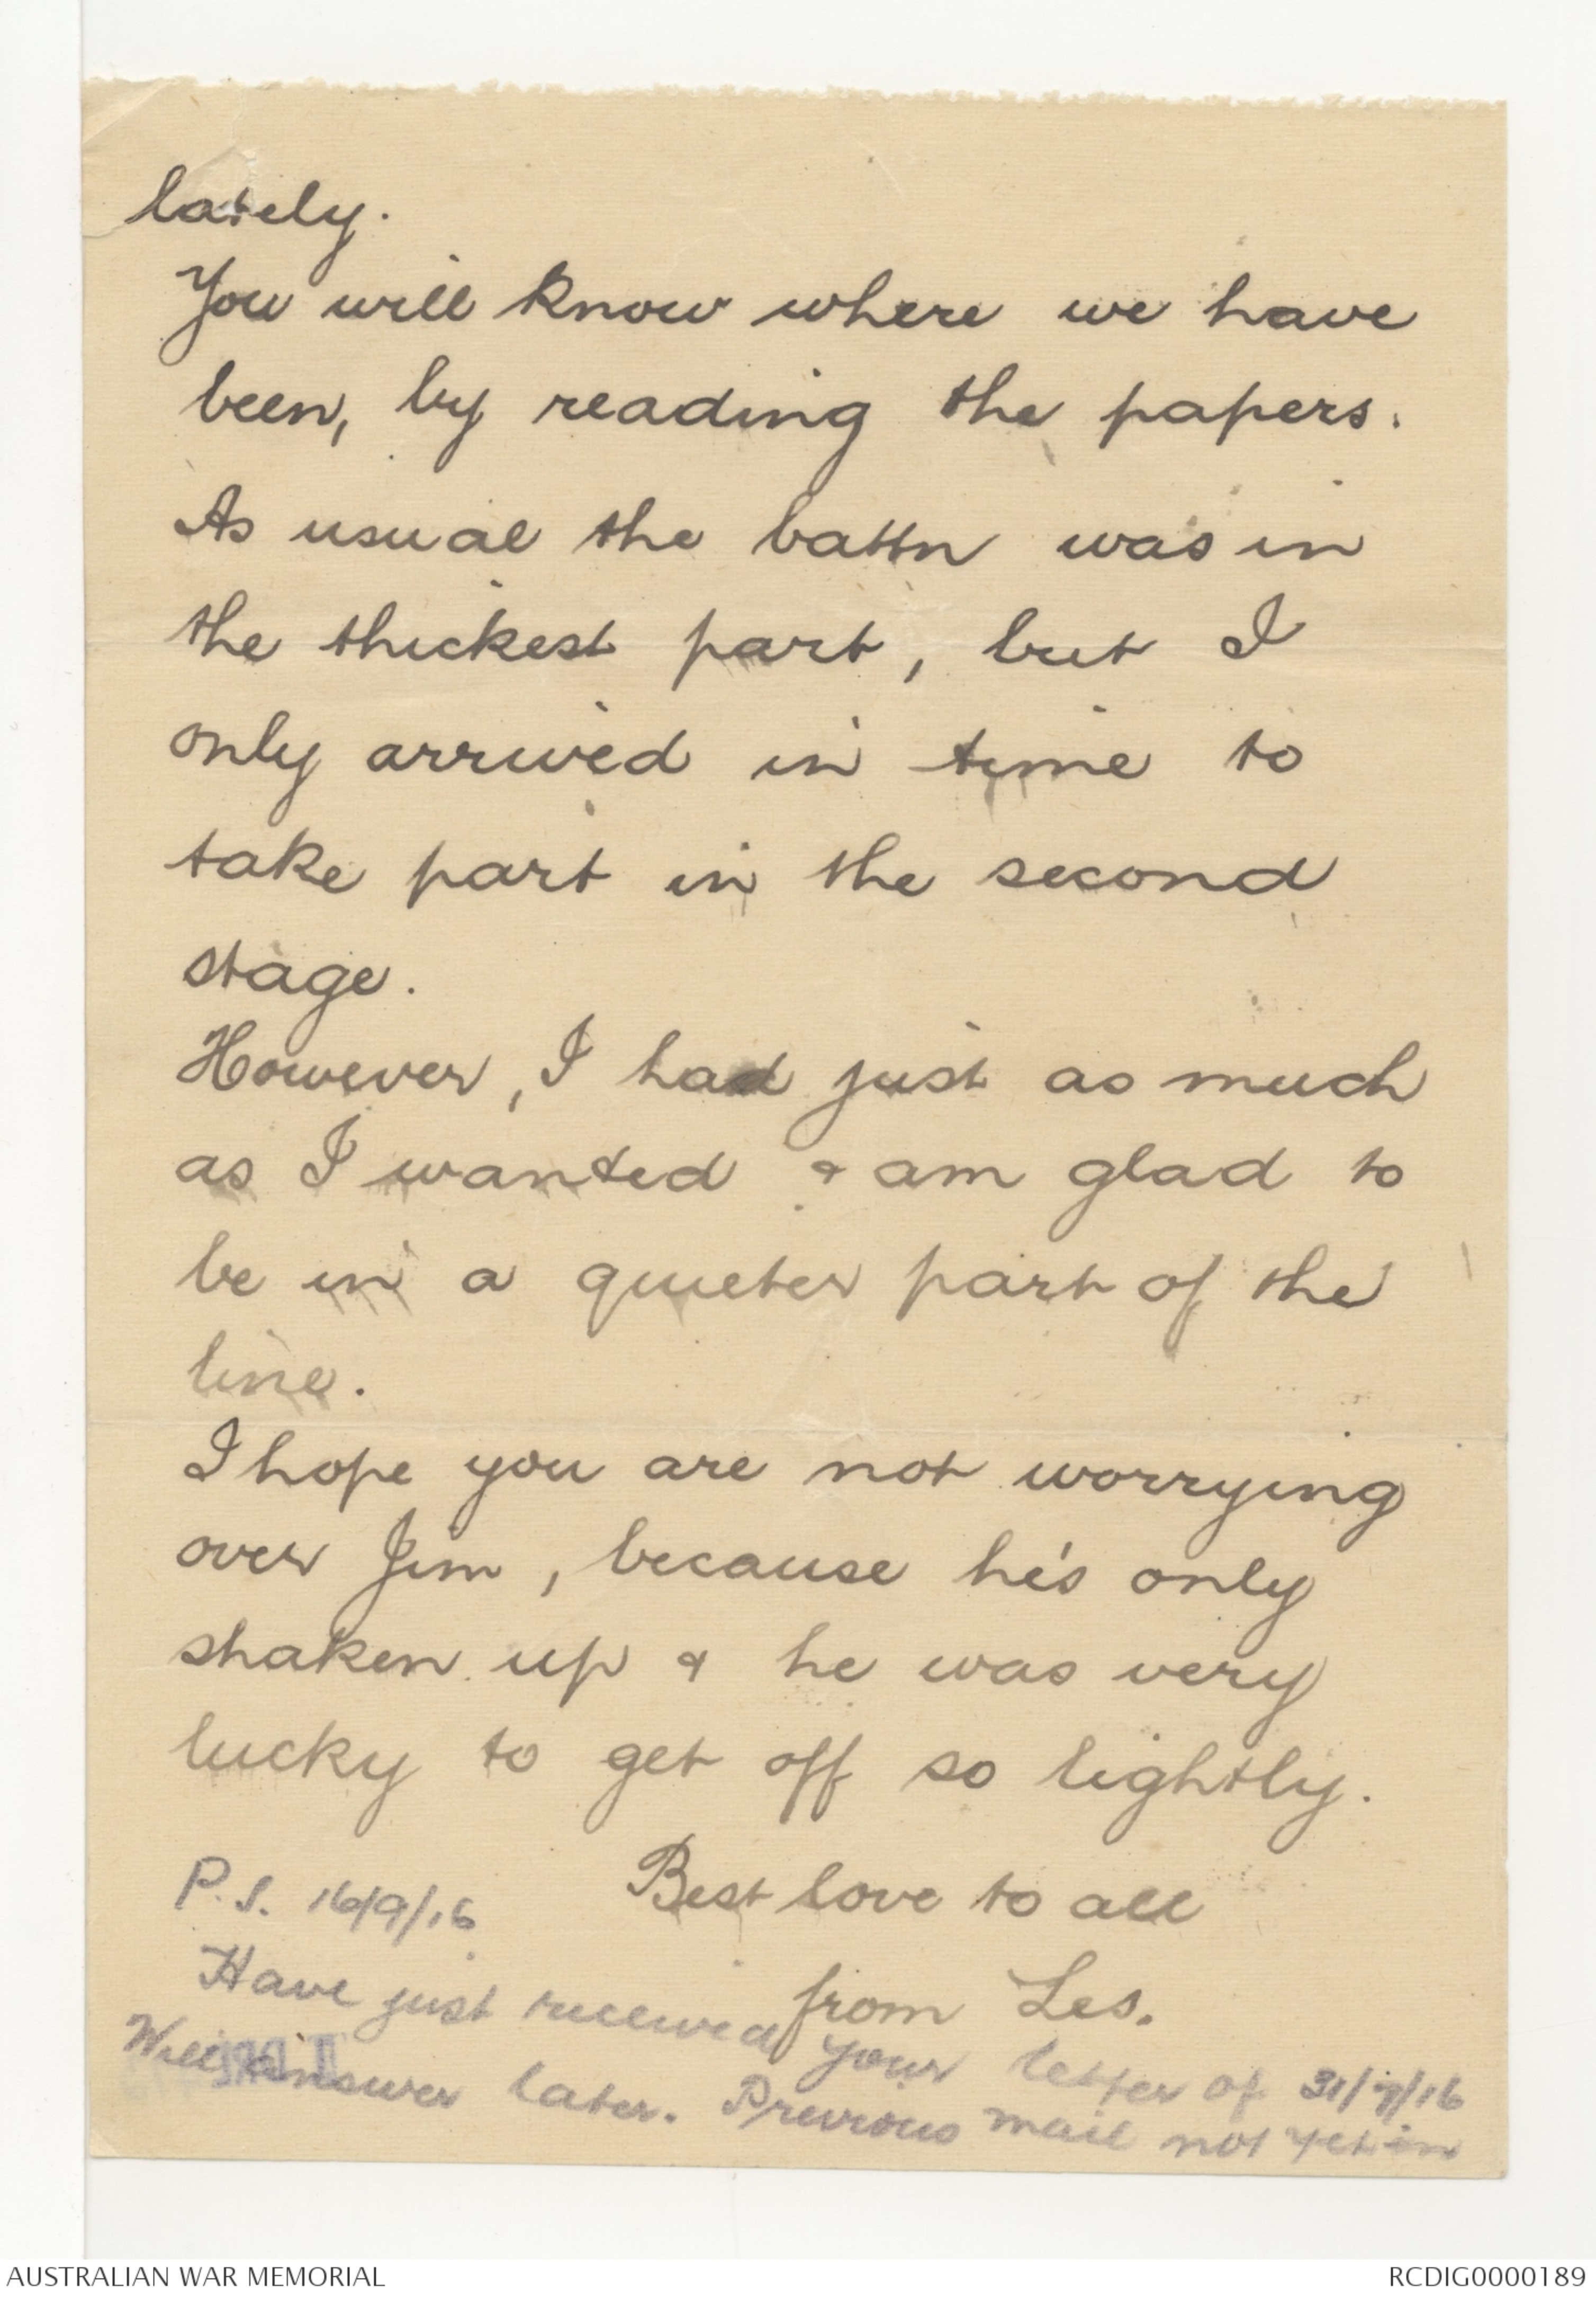 lately.
You will know where we have
been, by reading the papers.
As usual the battn was in
the thickest part, but I
only arrived in time to
take part in the second
stage.
However, I had just as much
as I wanted & am glad to
be in a quieter part of the
line.
I hope you are not worrying
over Jim, because he's only
shaken up & he was very
lucky to get off so lightly.
Best love to all
from Les.
P.S. 16/9/16
Have just received your letter of 31/7/16
Will answer later. Previous mail not yet in
AUSTRALIAN WAR MEMORIAL
RCDIG0000189